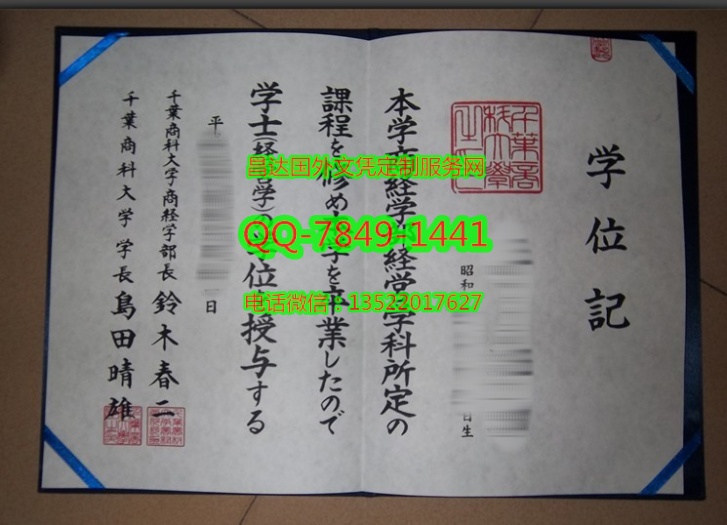 学位記
昭和
日生
本学商経学部経営学科所定の
課程を修め本学を卒業したので
学士(経営学)の学位を授与する
平
日
千葉商科大学商経学部長 鈴木春二
千葉商科大学学長 島田晴雄
昌达国外文凭定制服务网
QQ-7849-1441
电话微信：13522017627